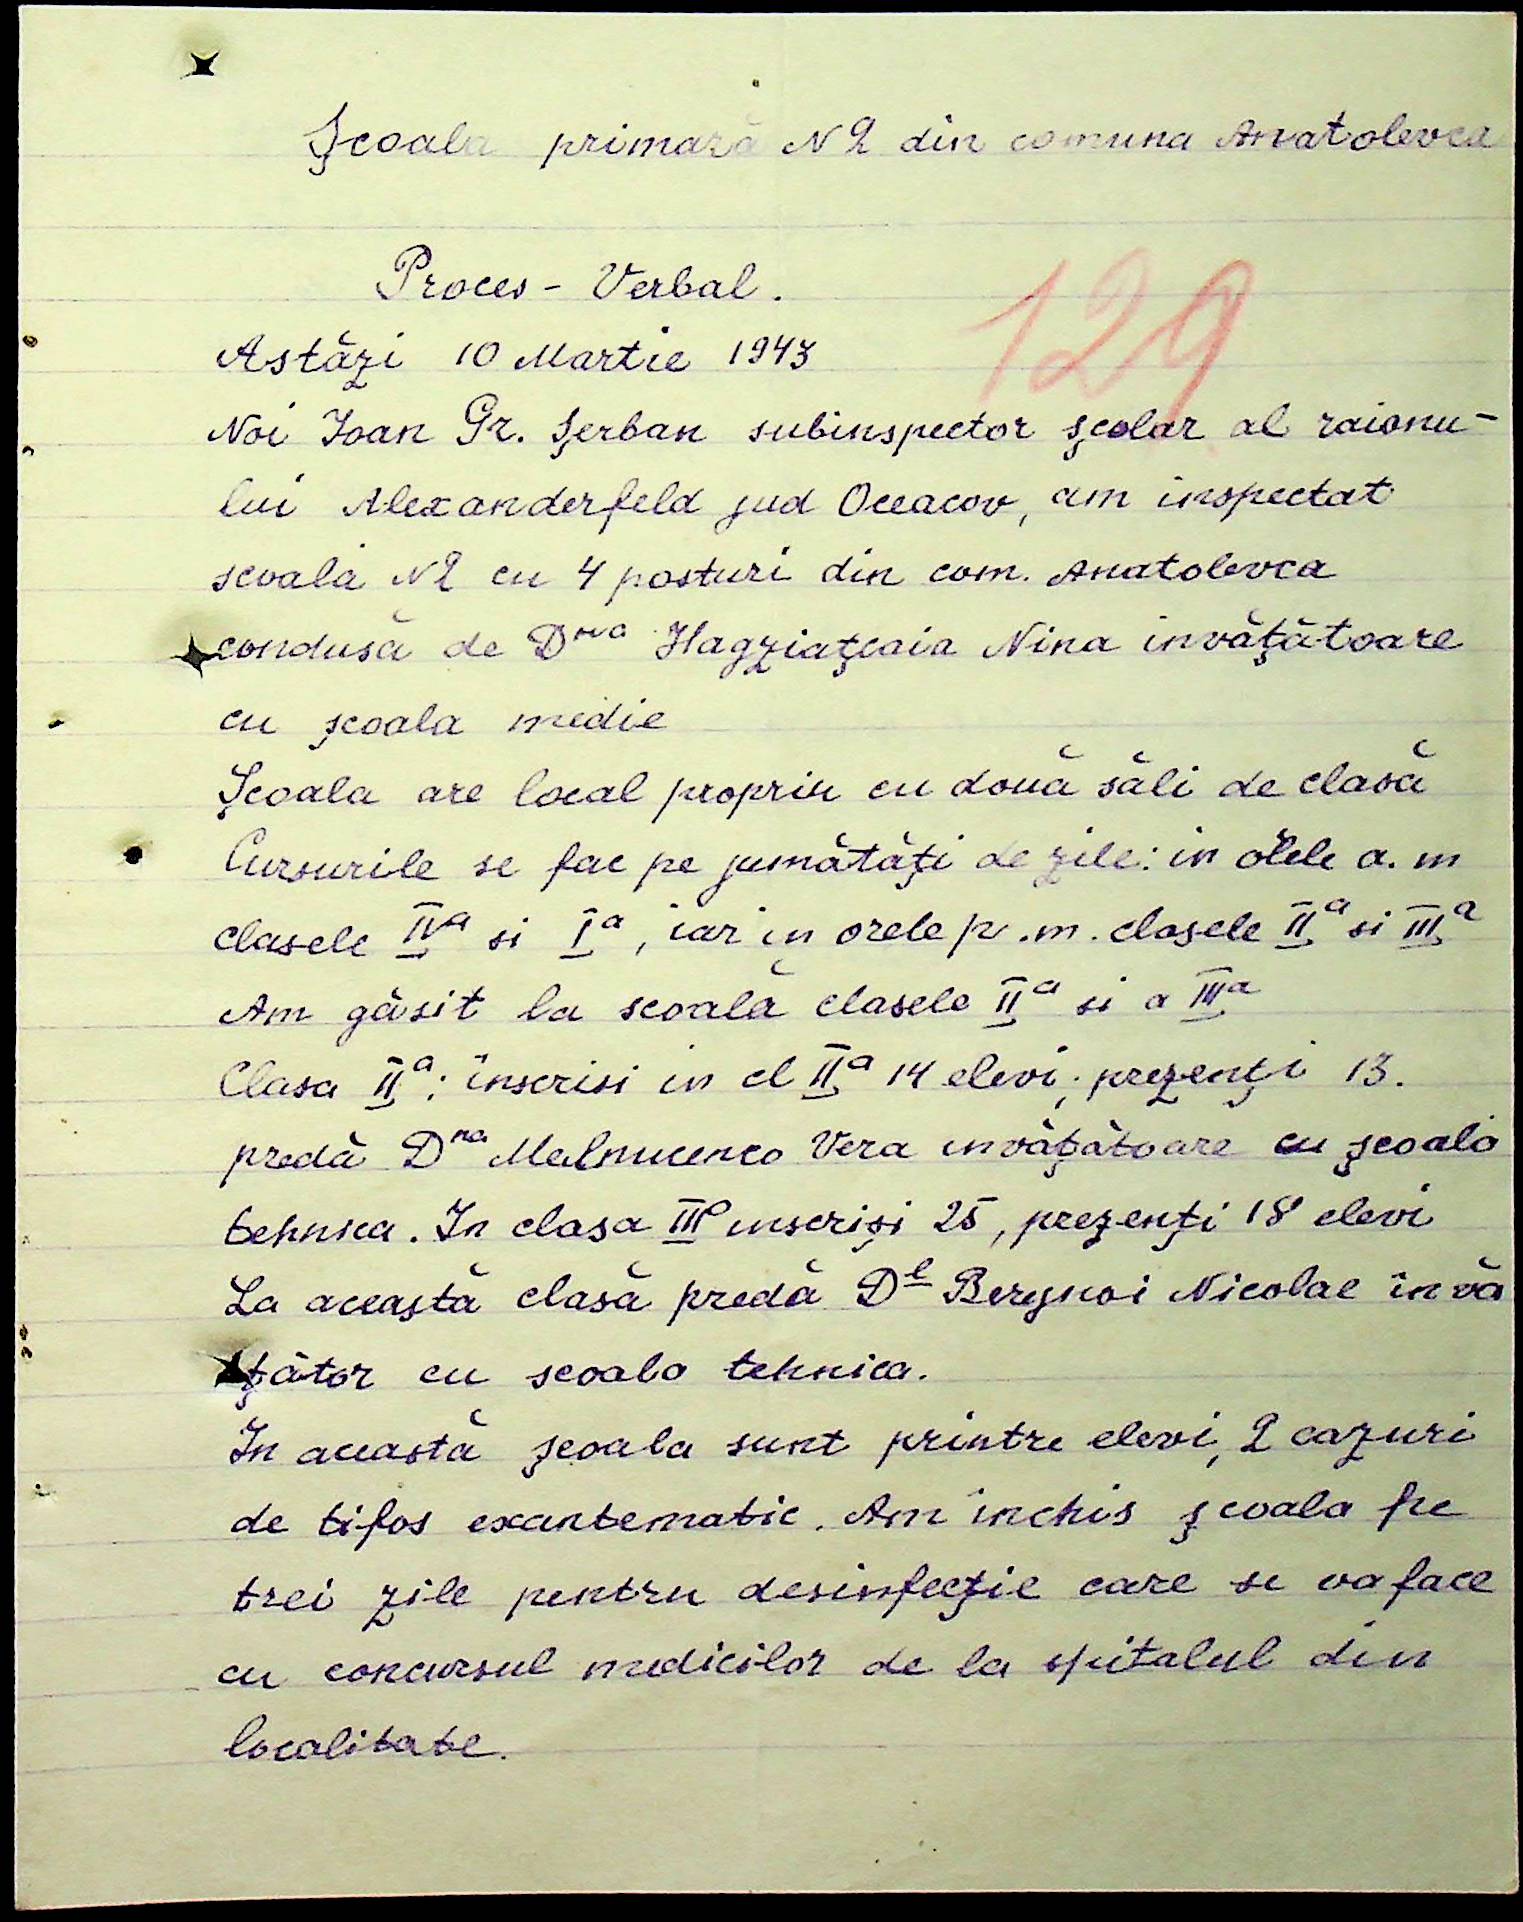 Școala primară N 2 din comuna Anatolevca
Proces - Verbal.
129
Astăzi 10 Martie 1943
Noi Ioan Gr. Șerban subinspector școlar al raionu-
lui Alexanderfeld jud Oceacov, am inspectat
scoala N 2 cu 4 posturi din com. Anatolevca
condusă de Dna Hagziațcaia Nina invățătoare
cu școala medie
Școala are local propriu cu două săli de clasă
Cursurile se fac pe jumătăți de zile: in orele a. m
clasele IVa si Ia, iar in orele p. m. clasele IIa si IIIa
Am găsit la scoală clasele IIa si a IIIa
Clasa IIa: înscrisi in cl IIa 14 elevi; prezenți 13.
predă Dna Vera invățătoare cu școala
tehnica. In clasa III inscriși 25, prezenți 18 elevi
La această clasă predă Dl Nicolae învă
țător cu scoala tehnica.
In această școala sunt printre elevi, 2 cazuri
de tifos exantematic. Am inchis școala pe
trei zile pentru desinfecție care se va face
cu concursul medicilor de la spitalul din
localitate.